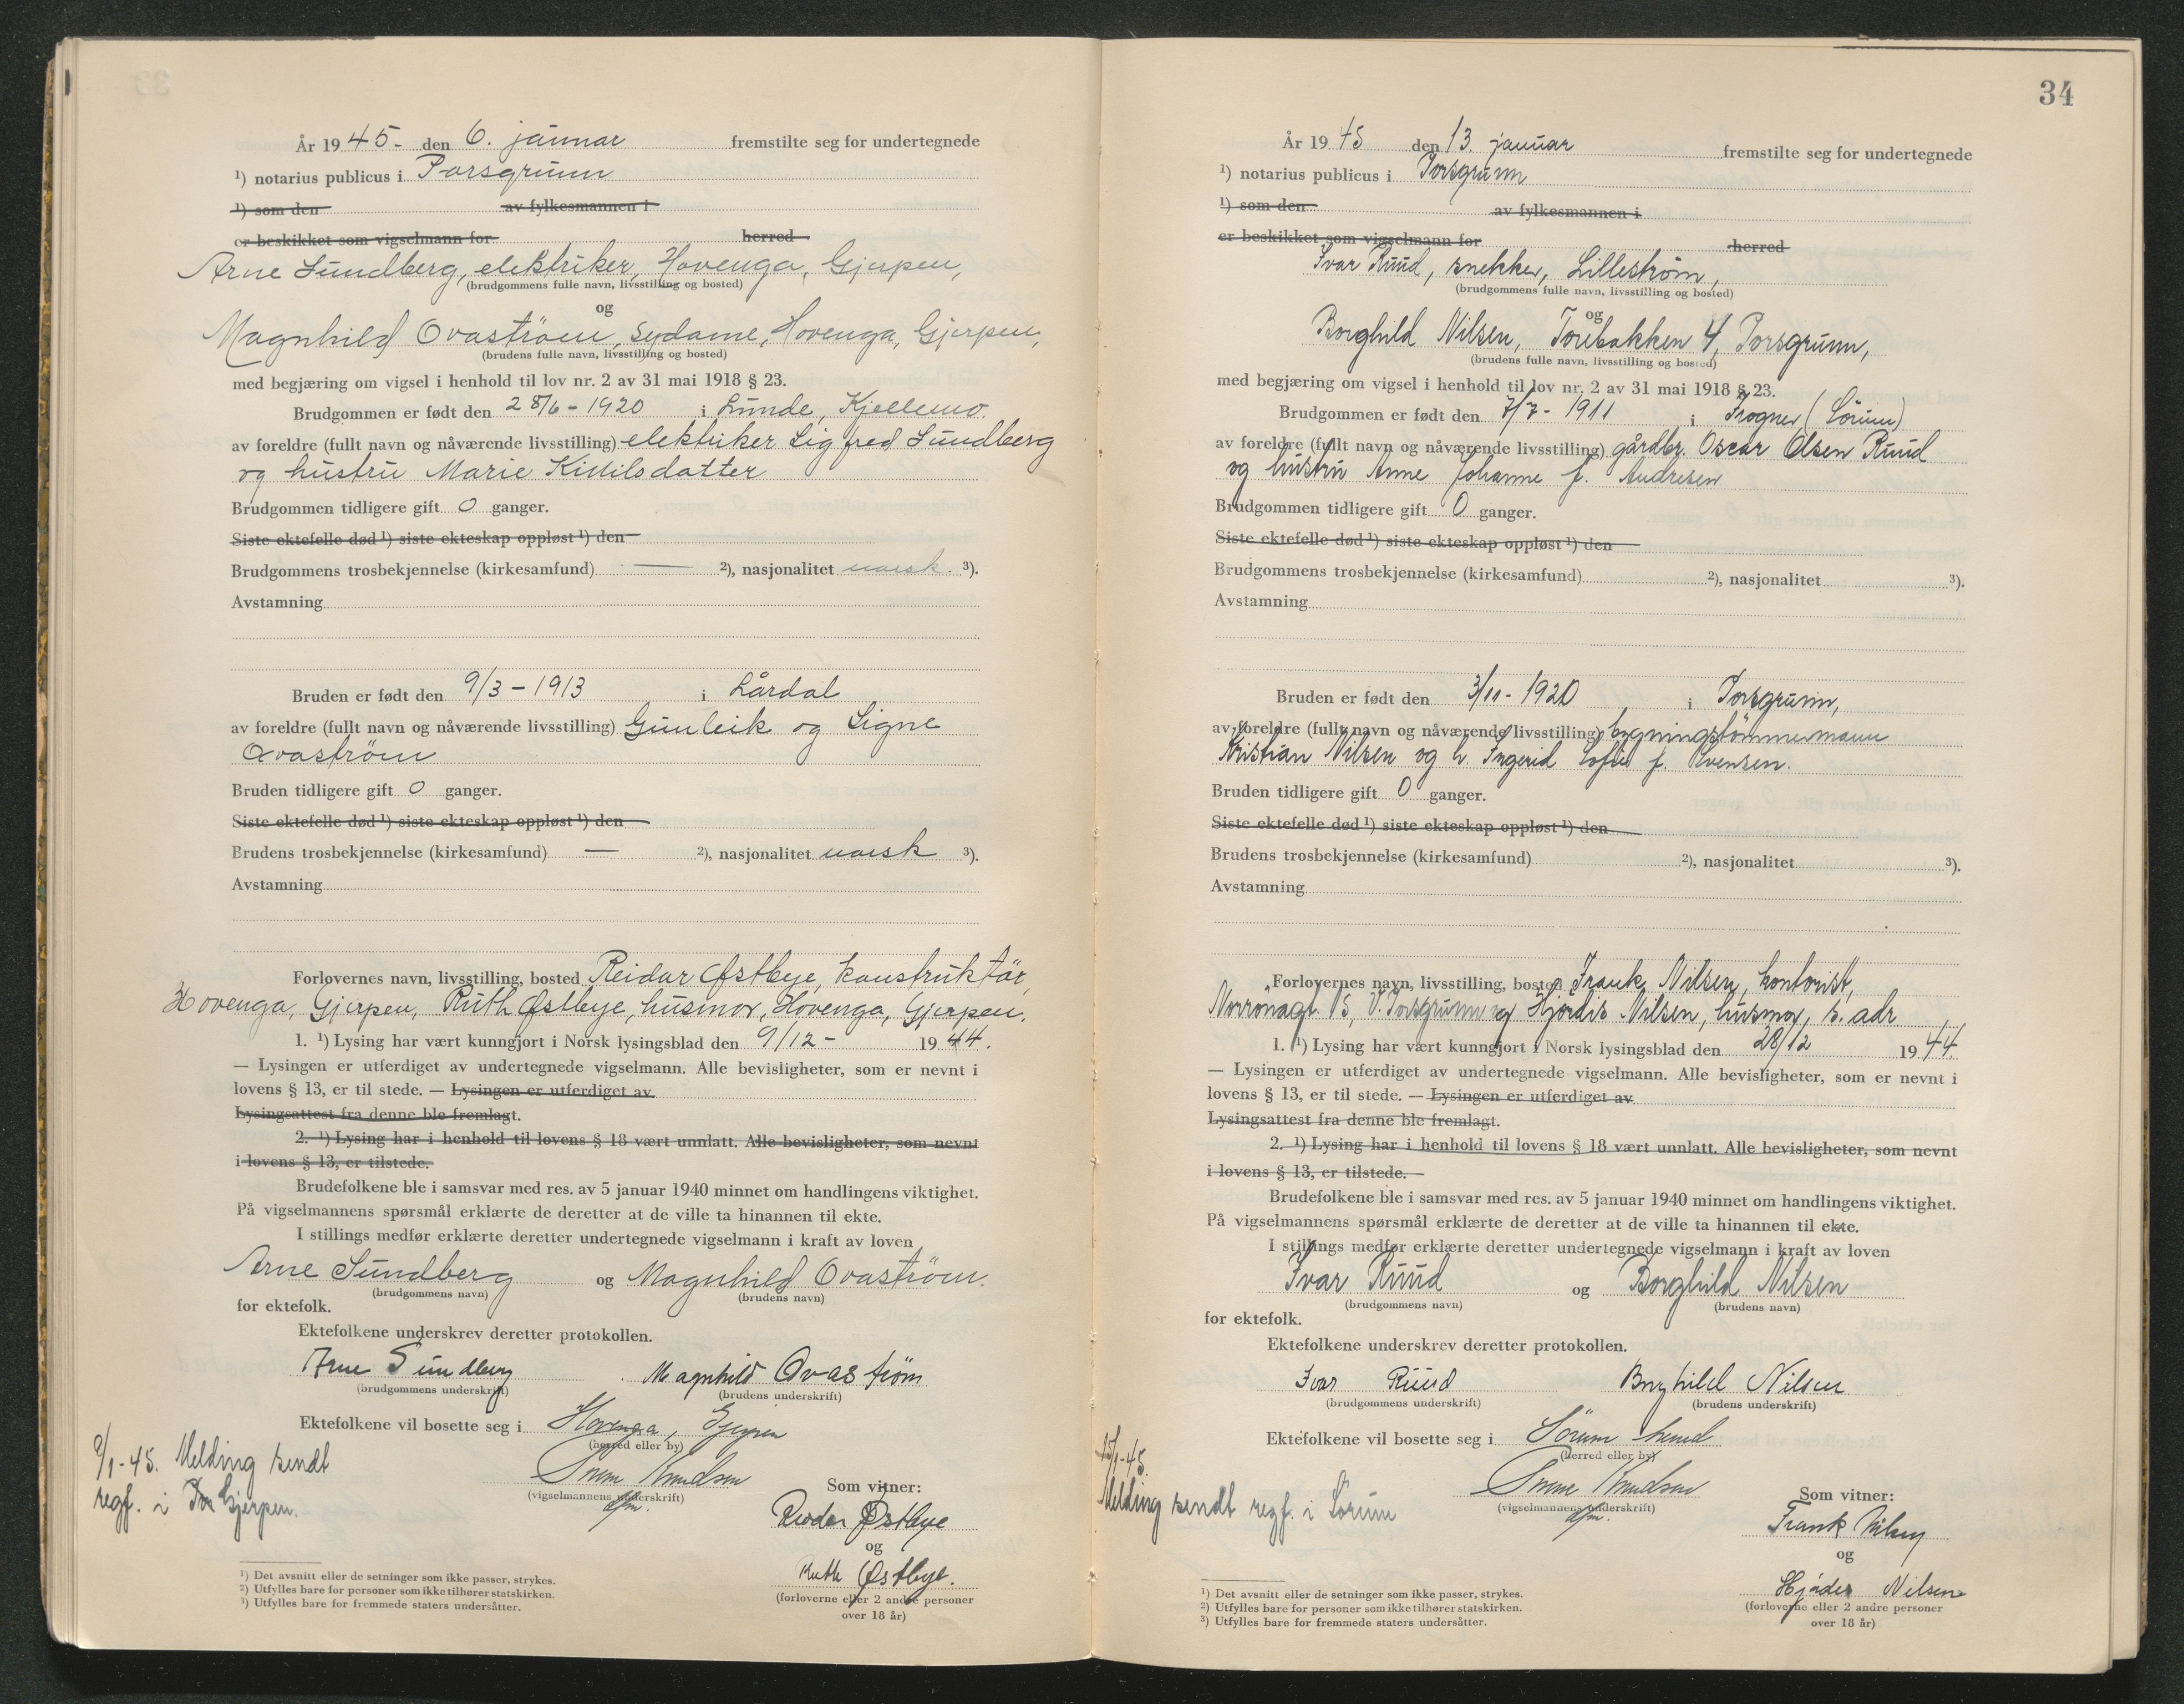 År 1945- den 6. januar fremstilte seg for undertegnede
¹) notarius publicus i Porsgrunn
¹) som den av fylkesmannen i
er beskikket som vigselmann for herred
Arne Sundberg, elektriker, Hovenga, Gjerpen,
(brudgommens fulle navn, livsstilling og bosted)
og
Magnhild Ovaström, sydame, Hovenga, Gjerpen,
(brudens fulle navn, livsstilling og bosted)
med begjæring om vigsel i henhold til lov nr. 2 av 31 mai 1918 § 23.
Brudgommen er født den 28/6-1920 i Lunde, Kjellemo.
av foreldre (fullt navn og nåværende livsstilling) elektriker Sigfred Sundberg
og hustru Marie Kittilsdatter
Brudgommen tidligere gift 0 ganger.
Siste ektefelle død ¹) siste ekteskap oppløst ¹) den
Brudgommens trosbekjennelse (kirkesamfund) — ²), nasjonalitet norsk. ³).
Avstamning
Bruden er født den 9/3-1913 i Lårdal
av foreldre (fullt navn og nåværende livsstilling) Gunleik og Signe
Ovaström
Bruden tidligere gift 0 ganger.
Siste ektefelle død ¹) siste ekteskap oppløst ¹) den
Brudens trosbekjennelse (kirkesamfund) — ²), nasjonalitet norsk ³).
Avstamning
Forlovernes navn, livsstilling, bosted Reidar Østbye, konstruktör,
Hovenga, Gjerpen, Ruth Østbye, husmor, Hovenga, Gjerpen.
1. ¹) Lysing har vært kunngjort i Norsk lysingsblad den 9/12- 1944.
— Lysingen er utferdiget av undertegnede vigselmann. Alle bevisligheter, som er nevnt i
lovens § 13, er til stede. — Lysingen er utferdiget av
Lysingsattest fra denne ble fremlagt.
2. ¹) Lysing har i henhold til lovens § 18 vært unnlatt. Alle bevisligheter, som nevnt
i lovens § 13, er tilstede.
Brudefolkene ble i samsvar med res. av 5 januar 1940 minnet om handlingens viktighet.
På vigselmannens spørsmål erklærte de deretter at de ville ta hinannen til ekte.
I stillings medfør erklærte deretter undertegnede vigselmann i kraft av loven
Arne Sundberg og Magnhild Ovaström.
(brudgommens navn) (brudens navn)
for ektefolk.
Ektefolkene underskrev deretter protokollen.
Arne Sundberg Magnhild Ovaström
(brudgommens underskrift) (brudens underskrift)
Ektefolkene vil bosette seg i Hovenga, Gjerpen
(herred eller by)
9/1-45. Melding sendt
regf. i Gjerpen.
Knudsen
(vigselmannens underskrift)
dfm.
Som vitner:
Reidar Østbye
og
Ruth Østbye.
(forloverne eller 2 andre personer
over 18 år)
¹) Det avsnitt eller de setninger som ikke passer, strykes.
²) Utfylles bare for personer som ikke tilhører statskirken.
³) Utfylles bare for fremmede staters undersåtter.
34
År 1945 den 13. januar fremstilte seg for undertegnede
¹) notarius publicus i Porsgrunn
¹) som den av fylkesmannen i
er beskikket som vigselmann for herred
Ivar Ruud, snekker, Lilleström,
(brudgommens fulle navn, livsstilling og bosted)
og
Borghild Nilsen, Torebakken 4, Porsgrunn,
(brudens fulle navn, livsstilling og bosted)
med begjæring om vigsel i henhold til lov nr. 2 av 31 mai 1918 § 23.
Brudgommen er født den 7/7-1911 i Frogner (Sörum)
av foreldre (fullt navn og nåværende livsstilling) gårdbr. Oscar Olsen Ruud
og hustru Anne Johanne f. Andresen
Brudgommen tidligere gift 0 ganger.
Siste ektefelle død ¹) siste ekteskap oppløst ¹) den
Brudgommens trosbekjennelse (kirkesamfund) ²), nasjonalitet ³).
Avstamning
Bruden er født den 3/11-1920 i Porsgrunn,
av foreldre (fullt navn og nåværende livsstilling) bygningstömmermann
Kristian Nilsen og h. Ingerid Sofie f. Svensen.
Bruden tidligere gift 0 ganger.
Siste ektefelle død ¹) siste ekteskap oppløst ¹) den
Brudens trosbekjennelse (kirkesamfund) ²), nasjonalitet ³).
Avstamning
Forlovernes navn, livsstilling, bosted Frank Nilsen, kontorist,
Norrönagt. 15, V. Porsgrunn og Hjördis Nilsen, husmor, s. adr.
1. ¹) Lysing har vært kunngjort i Norsk lysingsblad den 28/12 1944.
— Lysingen er utferdiget av undertegnede vigselmann. Alle bevisligheter, som er nevnt i
lovens § 13, er til stede. — Lysingen er utferdiget av
Lysingsattest fra denne ble fremlagt.
2. ¹) Lysing har i henhold til lovens § 18 vært unnlatt. Alle bevisligheter, som nevnt
i lovens § 13, er tilstede. —
Brudefolkene ble i samsvar med res. av 5 januar 1940 minnet om handlingens viktighet.
På vigselmannens spørsmål erklærte de deretter at de ville ta hinannen til ekte.
I stillings medfør erklærte deretter undertegnede vigselmann i kraft av loven
Ivar Ruud og Borghild Nilsen
(brudgommens navn) (brudens navn)
for ektefolk.
Ektefolkene underskrev deretter protokollen.
Ivar Ruud Borghild Nilsen
(brudgommens underskrift) (brudens underskrift)
Ektefolkene vil bosette seg i Sörum herred
(herred eller by)
15/1-45.
Melding sendt regf. i Sörum
Knudsen
(vigselmannens underskrift)
dfm.
Som vitner:
Frank Nilsen
og
Hjördis Nilsen
(forloverne eller 2 andre personer
over 18 år)
¹) Det avsnitt eller de setninger som ikke passer, strykes.
²) Utfylles bare for personer som ikke tilhører statskirken.
³) Utfylles bare for fremmede staters undersåtter.